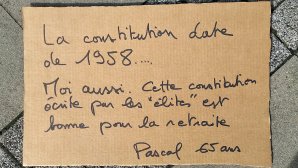 La constitution date
de 1958....
Moi aussi. Cette constitution
écrite par les "élites" est
bonne pour la retraite
Pascal 65 ans